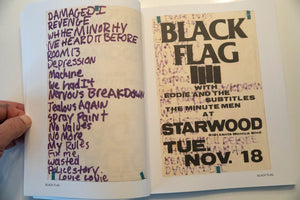 DAMAGED I
REVENGE
WHITE MINORITY
I'VE HEARD IT BEFORE
ROOM 13
Depression
Machine
We Had It
Nervous BREAKDOWN
Jealous Again
Spray Paint
No Values
No More
My Rules
Fix me
Wasted
Police story
Louie Louie
BLACK FLAG
BLACK
FLAG
WITH
EDDIE AND THE
SUBTITLES
THE MINUTE MEN
AT
STARWOOD
TUE.
NOV. 18
BLACK FLAG